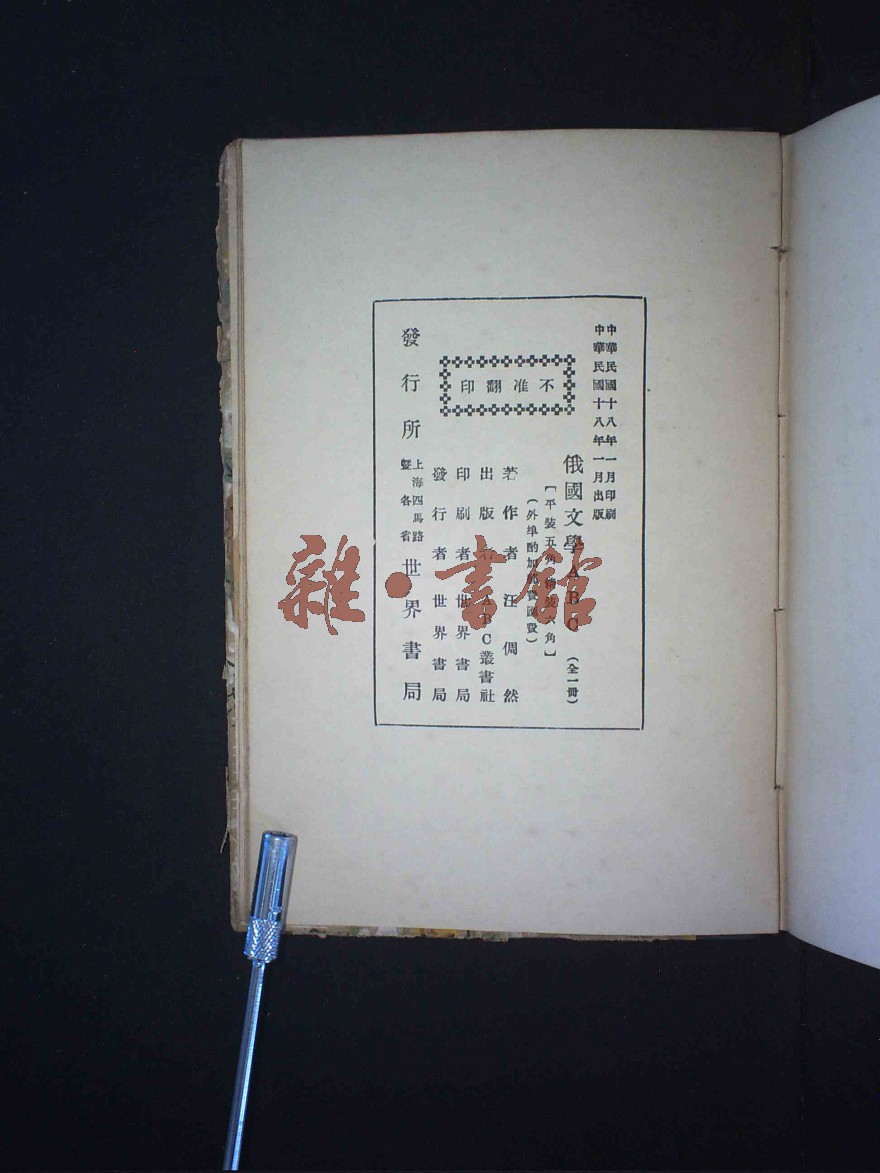 中華民國十八年一月印刷
中華民國十八年一月出版
俄國文學ABC(全一冊)
【平裝五角 六角】
(外埠酌加費匯費)
著作者 汪倜然
出版者 ABC叢書社
印刷者 世界書局
發行者 世界書局
不准翻印
發行所 上海四馬路 暨各省 世界書局
雜·書館